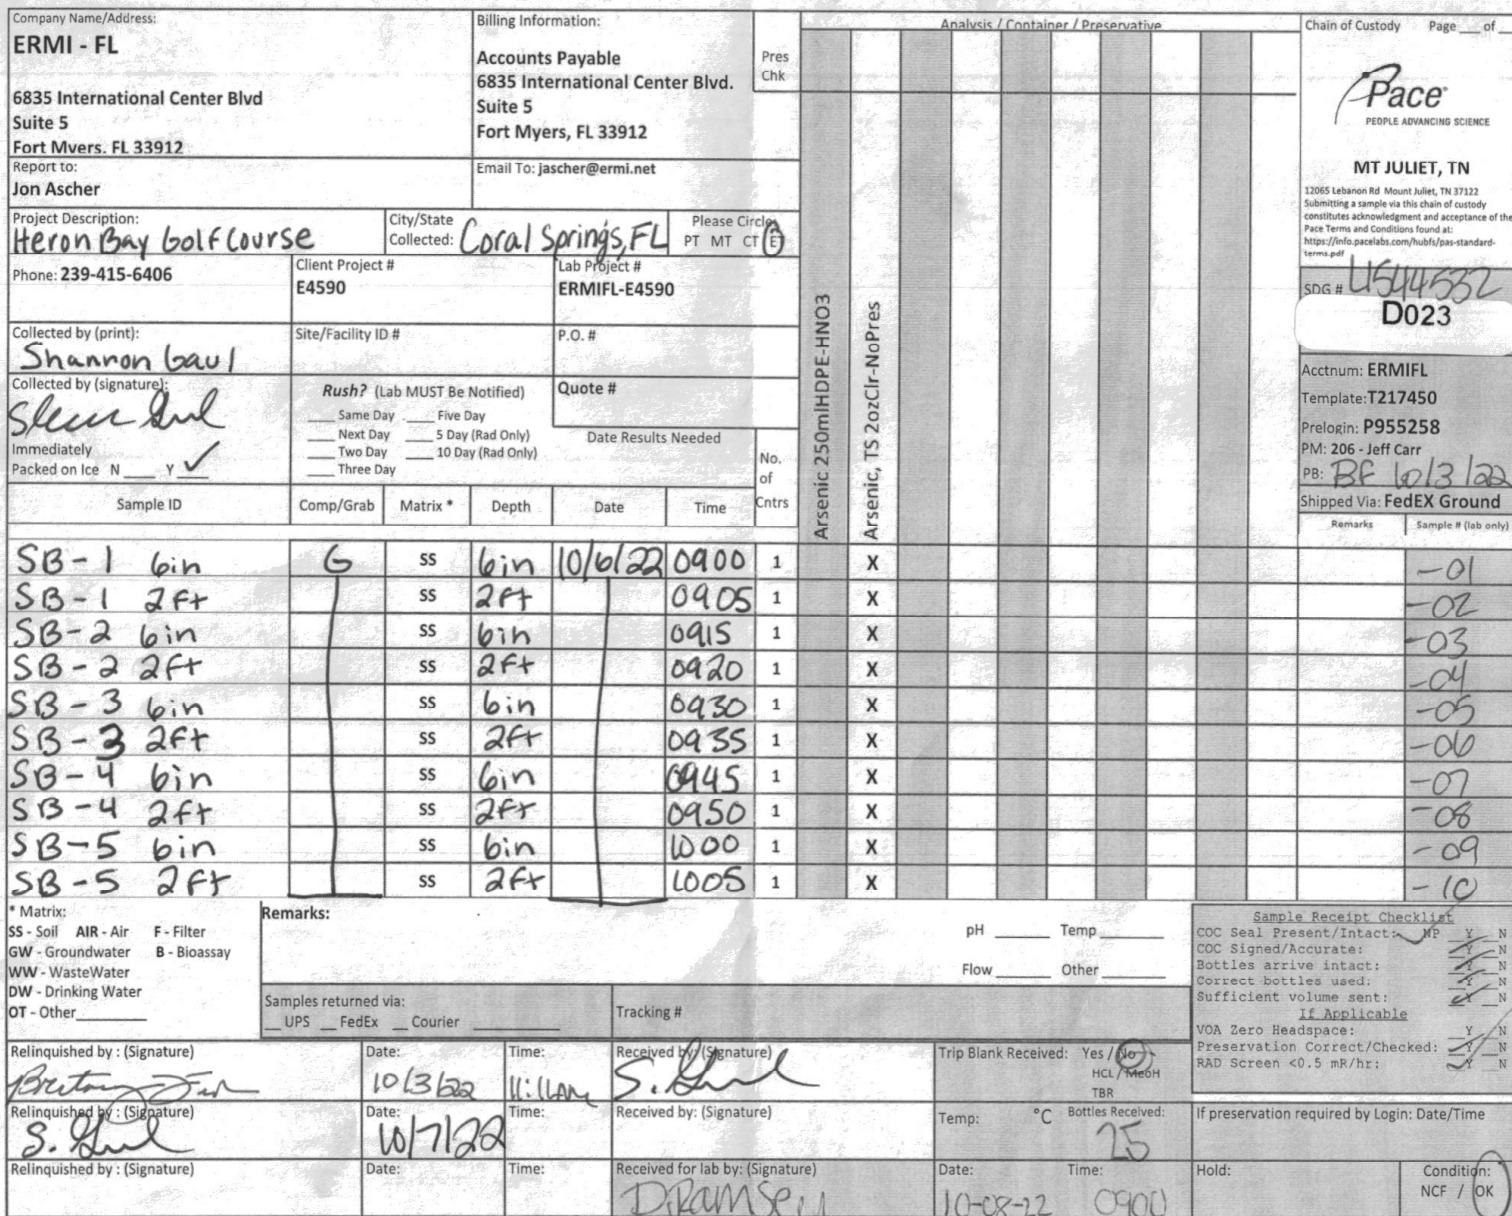 Company Name/Address:
ERMI - FL
6835 International Center Blvd
Suite 5
Fort Myers, FL 33912
Billing Information:
Accounts Payable
6835 International Center Blvd.
Suite 5
Fort Myers, FL 33912
Pres
Chk
Analysis / Container / Preservative
Chain of Custody Page ___ of ___
Pace
PEOPLE ADVANCING SCIENCE
MT JULIET, TN
12065 Lebanon Rd Mount Juliet, TN 37122
Submitting a sample via this chain of custody
constitutes acknowledgment and acceptance of the
Pace Terms and Conditions found at:
https://info.pacelabs.com/hubfs/pas-standard-
terms.pdf
Report to:
Jon Ascher
Email To: jascher@ermi.net
Project Description:
Heron Bay Golf Course
City/State
Collected: Coral Springs, FL
Please Circle:
PT MT CT ET
Phone: 239-415-6406
Client Project #
E4590
Lab Project #
ERMIFL-E4590
SDG # L1544532
D023
Collected by (print):
Shannon Gaul
Site/Facility ID #
P.O. #
Collected by (signature):
Rush? (Lab MUST Be Notified)
___ Same Day ___ Five Day
___ Next Day ___ 5 Day (Rad Only)
___ Two Day ___ 10 Day (Rad Only)
___ Three Day
Quote #
Date Results Needed
Immediately
Packed on Ice N ___ Y ✓
No.
of
Cntrs
Arsenic 250mlHDPE-HNO3
Arsenic, TS 2ozClr-NoPres
Acctnum: ERMIFL
Template:T217450
Prelogin: P955258
PM: 206 - Jeff Carr
PB: BF 10/3/22
Shipped Via: FedEX Ground
Sample ID Comp/Grab Matrix * Depth Date Time Remarks Sample # (lab only)
SB-1 6in G SS 6in 10/6/22 0900 1 X -01
SB-1 2ft SS 2ft 0905 1 X -02
SB-2 6in SS 6in 0915 1 X -03
SB-2 2ft SS 2ft 0920 1 X -04
SB-3 6in SS 6in 0930 1 X -05
SB-3 2ft SS 2ft 0935 1 X -06
SB-4 6in SS 6in 0945 1 X -07
SB-4 2ft SS 2ft 0950 1 X -08
SB-5 6in SS 6in 1000 1 X -09
SB-5 2ft SS 2ft 1005 1 X -10
* Matrix:
SS - Soil AIR - Air F - Filter
GW - Groundwater B - Bioassay
WW - WasteWater
DW - Drinking Water
OT - Other________
Remarks:
pH ______ Temp ______
Flow ______ Other ______
Samples returned via:
__ UPS __ FedEx __ Courier ________
Tracking #
Sample Receipt Checklist
COC Seal Present/Intact: NP Y N
COC Signed/Accurate: Y N
Bottles arrive intact: Y N
Correct bottles used: Y N
Sufficient volume sent: Y N
If Applicable
VOA Zero Headspace: Y N
Preservation Correct/Checked: Y N
RAD Screen <0.5 mR/hr: Y N
Relinquished by : (Signature)
Date:
10/3/22
Time:
11:11AM
Received by: (Signature)
S. Gaul
Trip Blank Received: Yes / No
HCL / MeoH
TBR
Relinquished by : (Signature)
S. Gaul
Date:
10/7/22
Time:
Received by: (Signature)
Temp: °C Bottles Received:
25
If preservation required by Login: Date/Time
Relinquished by : (Signature)
Date:
Time:
Received for lab by: (Signature)
D. Ramsey
Date:
10-08-22
Time:
0900
Hold:
Condition:
NCF / OK